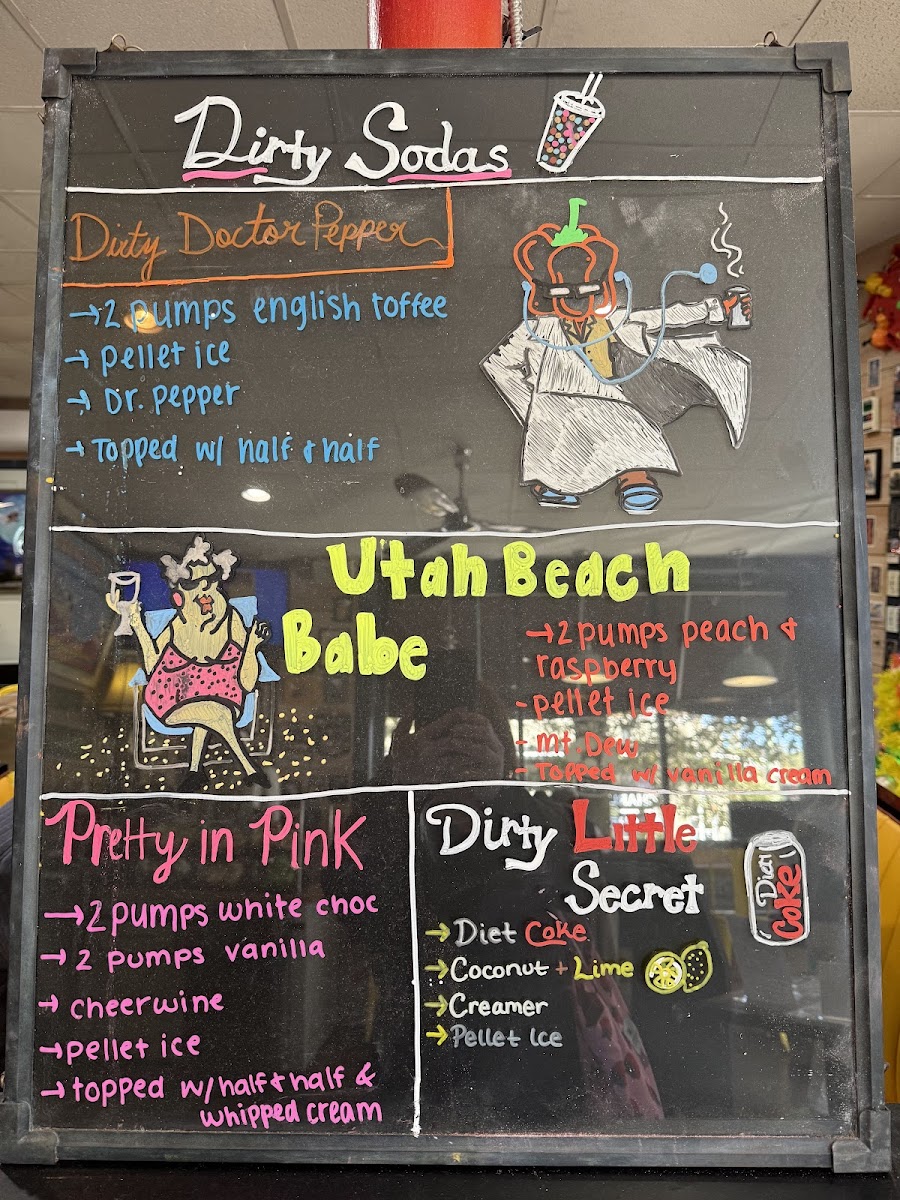 Dirty Sodas
Dirty Doctor Pepper
→2 pumps english toffee
→ pellet ice
→ Dr. pepper
→ Topped w/ half & half
Utah Beach
Babe
→2 pumps peach &
raspberry
- pellet ice
- mt. Dew
- Topped w/ vanilla cream
Pretty in Pink
→2 pumps white choc
→ 2 pumps vanilla
→ cheerwine
→pellet ice
→ topped w/half & half &
whipped cream
Dirty Little
Secret
→Diet Coke
→Coconut + Lime
→Creamer
→Pellet Ice
Diet
Coke